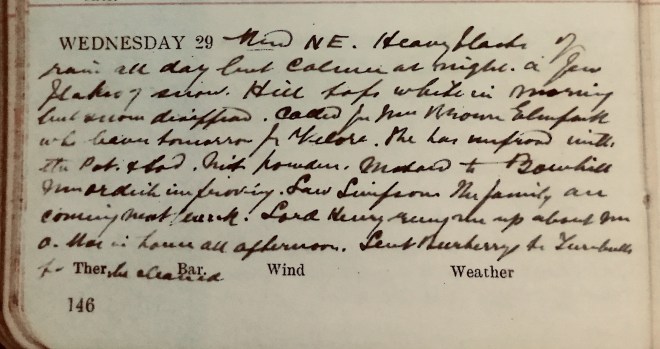 WEDNESDAY 29 Wind NE. Heavy blasts of
rain all day but calmer at night. A few
flakes of snow. Hill tops white in morning
but snow disappeared. Called for Mrs Brown Elmpark
who leaves tomorrow for. She has improved with
the Pot. & Sod. Nit powders. Motored to Bowhill
improving. Saw Simpson. The family are
coming next week. Lord Henry rung me up about
home all afternoon. Sent Burberry to Turnbulls
to be cleaned
Ther. Bar. Wind Weather
146